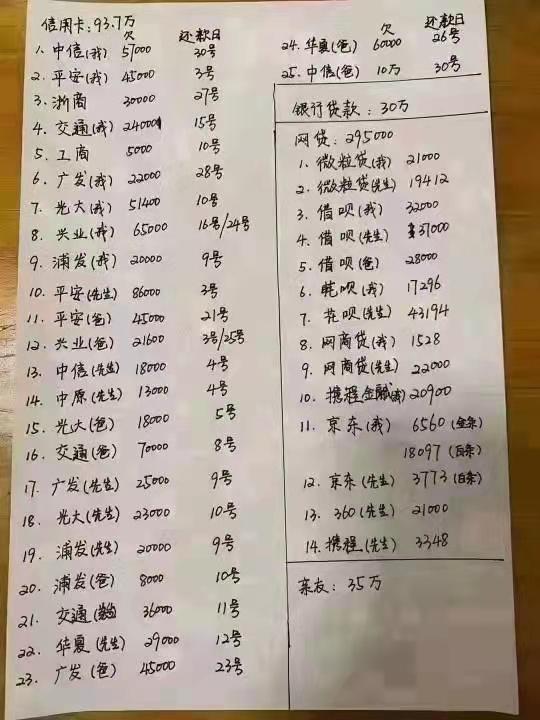 信用卡：93.7万
欠 还款日
1. 中信(我) 57000 30号
2. 平安(我) 45000 3号
3. 浙商 30000 27号
4. 交通(我) 24000 15号
5. 工商 5000 10号
6. 广发(我) 22000 28号
7. 光大(我) 51400 10号
8. 兴业(我) 65000 16号/24号
9. 浦发(我) 20000 9号
10. 平安(先生) 86000 3号
11. 平安(爸) 45000 21号
12. 兴业(爸) 21600 3号/25号
13. 中信(先生) 18000 4号
14. 中原(先生) 13000 4号
15. 光大(爸) 18000 5号
16. 交通(爸) 70000 8号
17. 广发(先生) 25000 9号
18. 光大(先生) 23000 10号
19. 浦发(先生) 20000 9号
20. 浦发(爸) 8000 10号
21. 交通 36000 11号
22. 华夏(先生) 29000 12号
23. 广发(爸) 45000 23号
欠 还款日
24. 华夏(爸) 60000 26号
25. 中信(爸) 10万 30号
银行贷款：30万
网贷：295000
1. 微粒贷(我) 21000
2. 微粒贷(先生) 19412
3. 借呗(我) 32000
4. 借呗(先生) 37000
5. 借呗(爸) 28000
6. 花呗(我) 17296
7. 花呗(先生) 43194
8. 网商贷(我) 1528
9. 网商贷(先生) 22000
10. 携程金融(我) 20900
11. 京东(我) 6560 (金条)
18097 (白条)
12. 京东(先生) 3773 (白条)
13. 360(先生) 21000
14. 携程(先生) 3348
亲友：35万